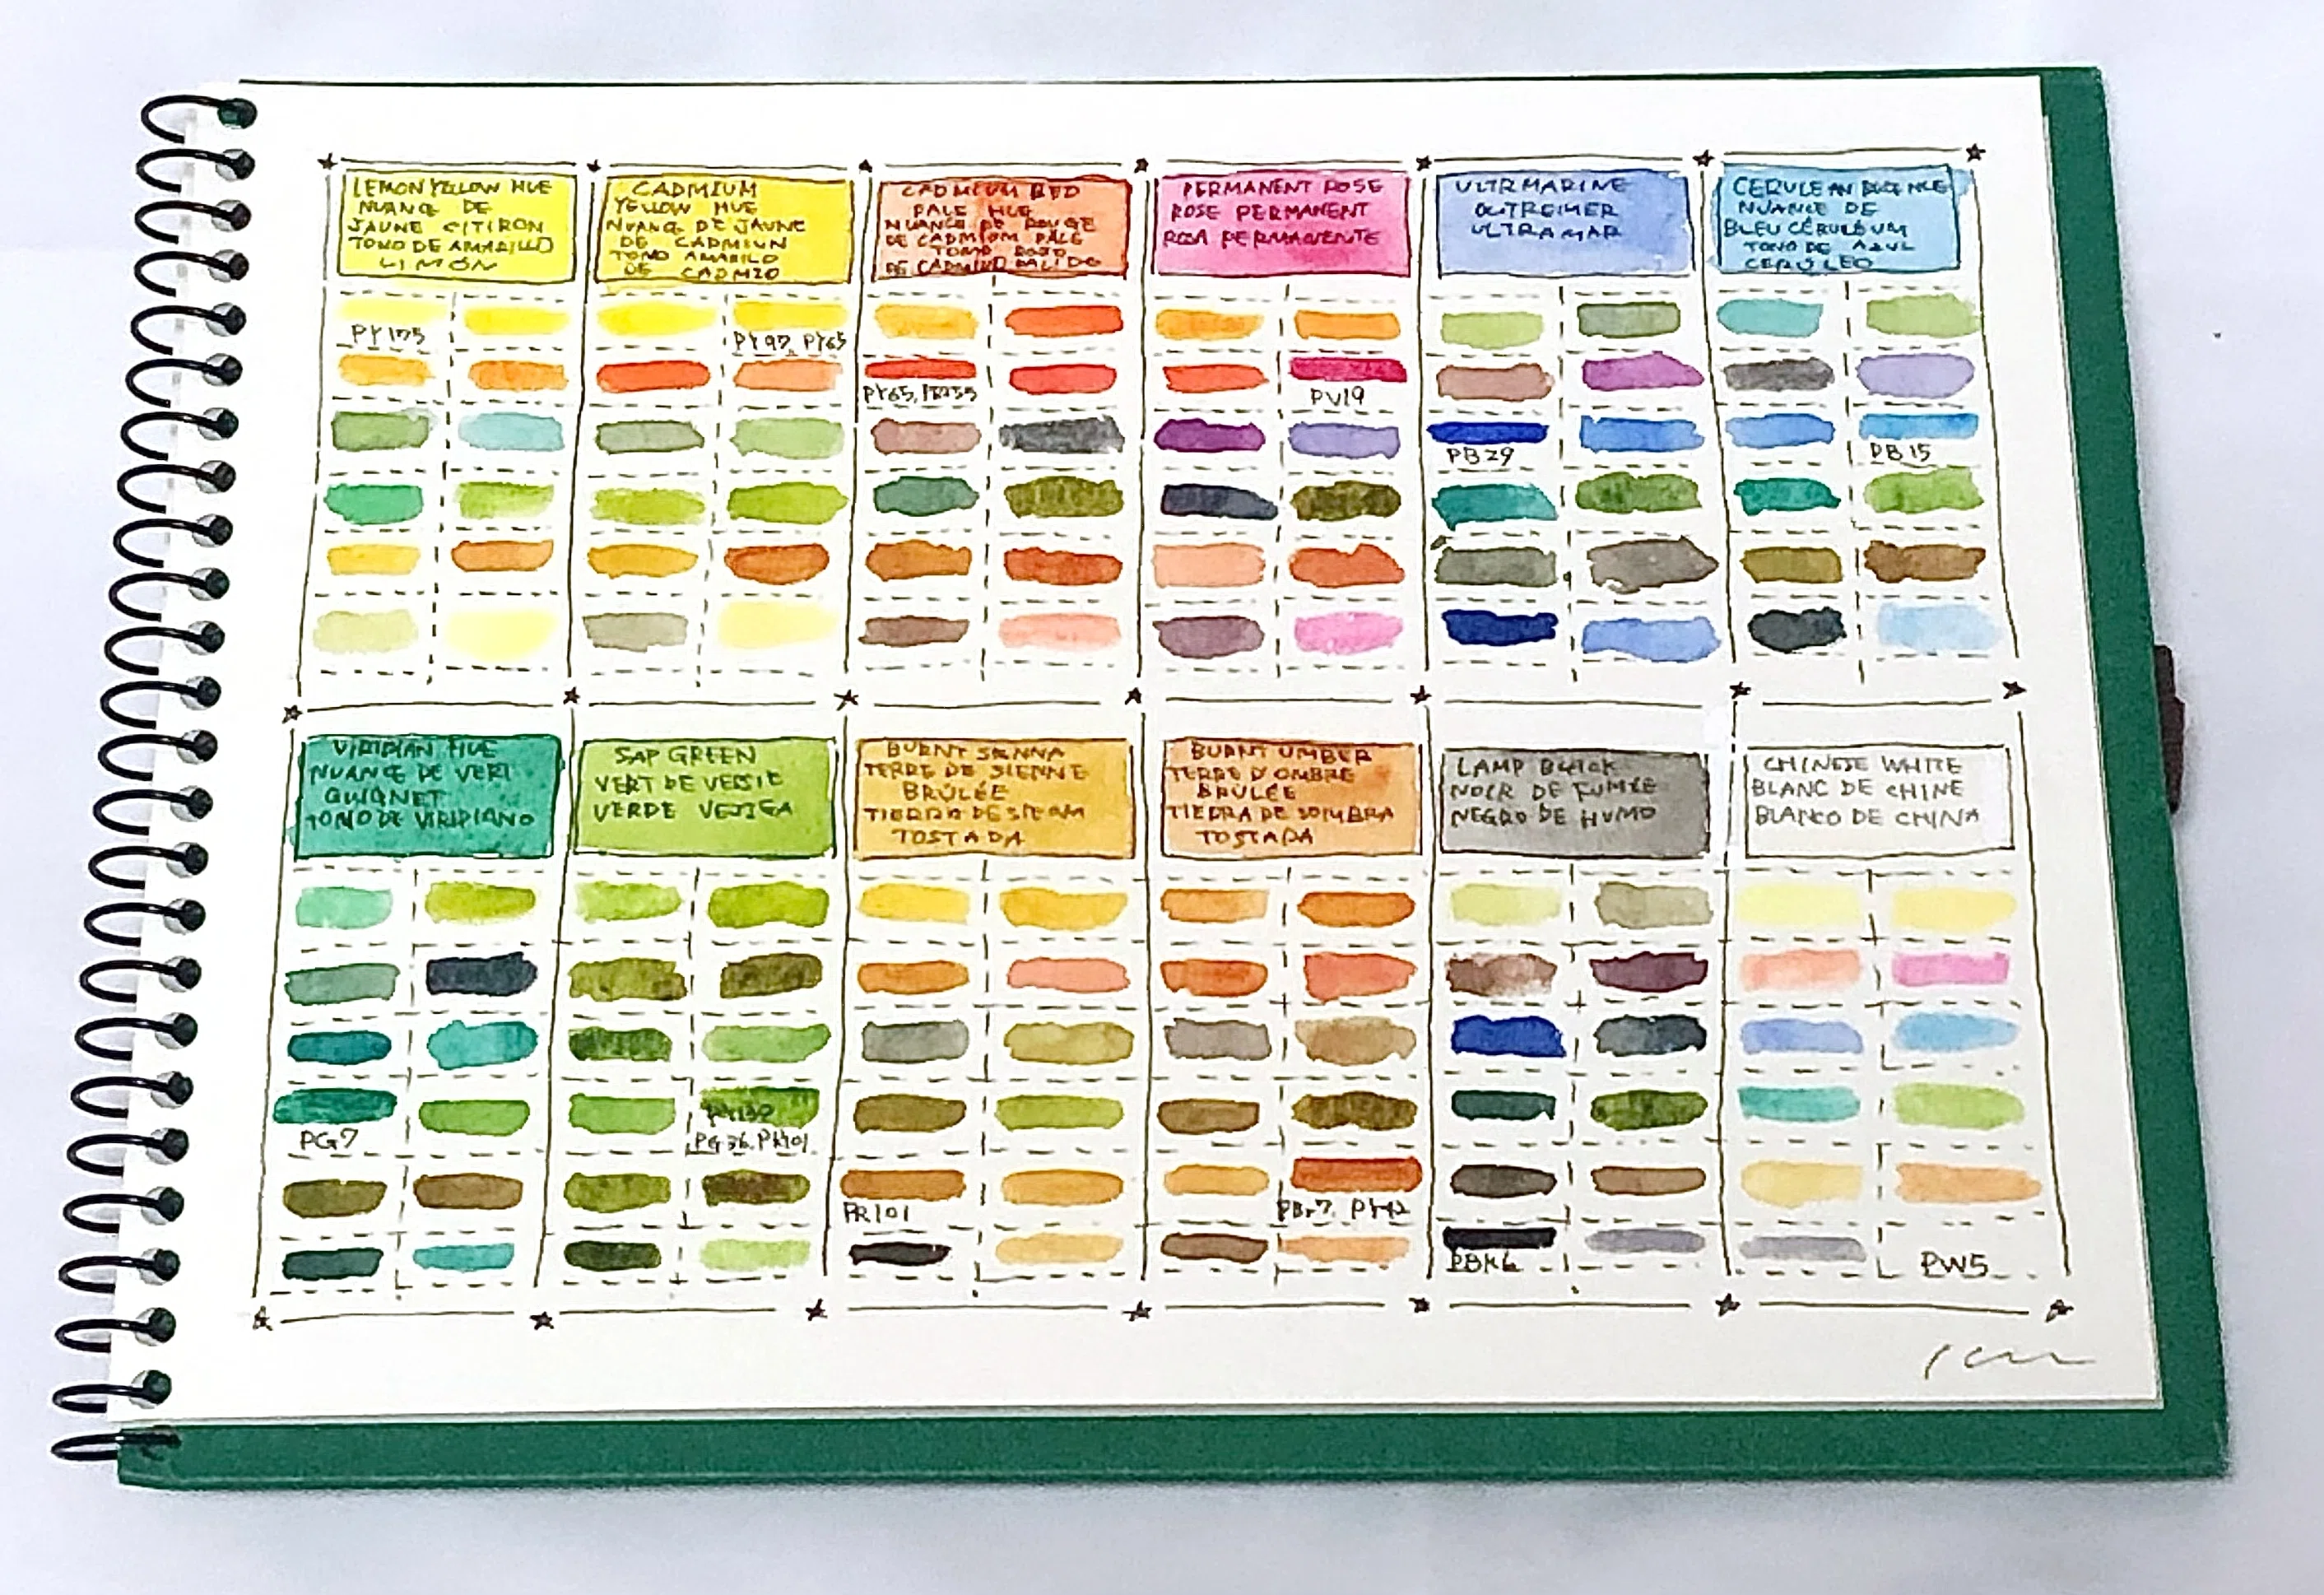 LEMON YELLOW HUE
NUANCE DE
JAUNE CITIRON
TONO DE AMARILLO
LIMÓN
CADMIUM
YELLOW HUE
NUANC DE JAUNE
DE CADMIUN
TONO AMARILO
DE CADMIO
CADMIUM RED
PALE HUE
NUANCE DE ROUGE
DE CADMIUM PALE
TOMO ROJO
DE CADMIUO PALIDO
PERMANENT ROSE
ROSE PERMANENT
ROSA PERMANENTE
ULTRMARINE
OUTREMER
ULTRAMAR
CERULEAN HUE
NUANCE DE
BLEU CÉRULÉUM
TONO DE AZUL
CERÚLEO
PY175
PY97, PY65
PY65, PR255
PV19
PB29
PB15
VIRIDIAN HUE
NUANCE DE VERT
GUIGNET
TONO DE VIRIDIANO
SAP GREEN
VERT DE VESSIE
VERDE VEJIGA
BURNT SIENNA
TERRE DE SIENNE
BRÛLÉE
TIERRA DE SIENA
TOSTADA
BURNT UMBER
TERRE D'OMBRE
BRULÉE
TIERRA DE SOMBRA
TOSTADA
LAMP BLACK
NOIR DE FUMÉE
NEGRO DE HUMO
CHINESE WHITE
BLANC DE CHINE
BLANCO DE CHINA
PG7
PG36, PR101
PR101
PBr7, PY42
PBK6
PW5